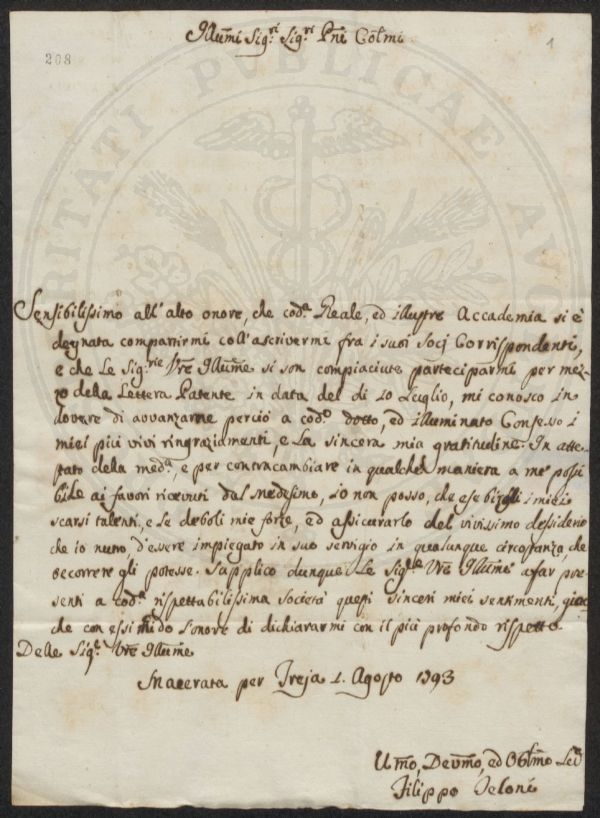 Illumi Sigri Sigri Pni Colmi
208
1
Sensibilissimo all'alto onore, che coda Reale, ed illustre Accademia si è
degnata compartirmi coll'ascrivermi fra i suoi Socj Corrispondenti,
e che Le Sigrie Vre Illume si son compiaciute parteciparmi per mez-
zo della Lettera Patente in data del dì 10 Luglio, mi conosco in
dovere di avvanzarne perciò a codo dotto, ed illuminato Consesso i
miei più vivi ringraziamenti, e la sincera mia gratitudine. In atte-
stato della meda, e per contracambiare in qualche maniera a me possi
bile ai favori ricevuti dal medesimo, io non posso, che esebirgli i miei
scarsi talenti, e le deboli mie forze, ed assicurarlo del vivissimo desiderio
che io nutro, d'essere impiegato in suo servigio in qualunque circostanza, che
occorrere gli potesse. Supplico dunque Le Sigrie Vre Illume a far pre-
senti a coda rispettabilissima Società questi sinceri miei sentimenti, giac
che con essi mi do l'onore di dichiararmi con il più profondo rispetto
Delle Sigr. Vre Illume
Macerata per Treja 1. Agosto 1793
Umo, Devmo, ed Obblmo
Filippo
VERITATI PUBLICAE